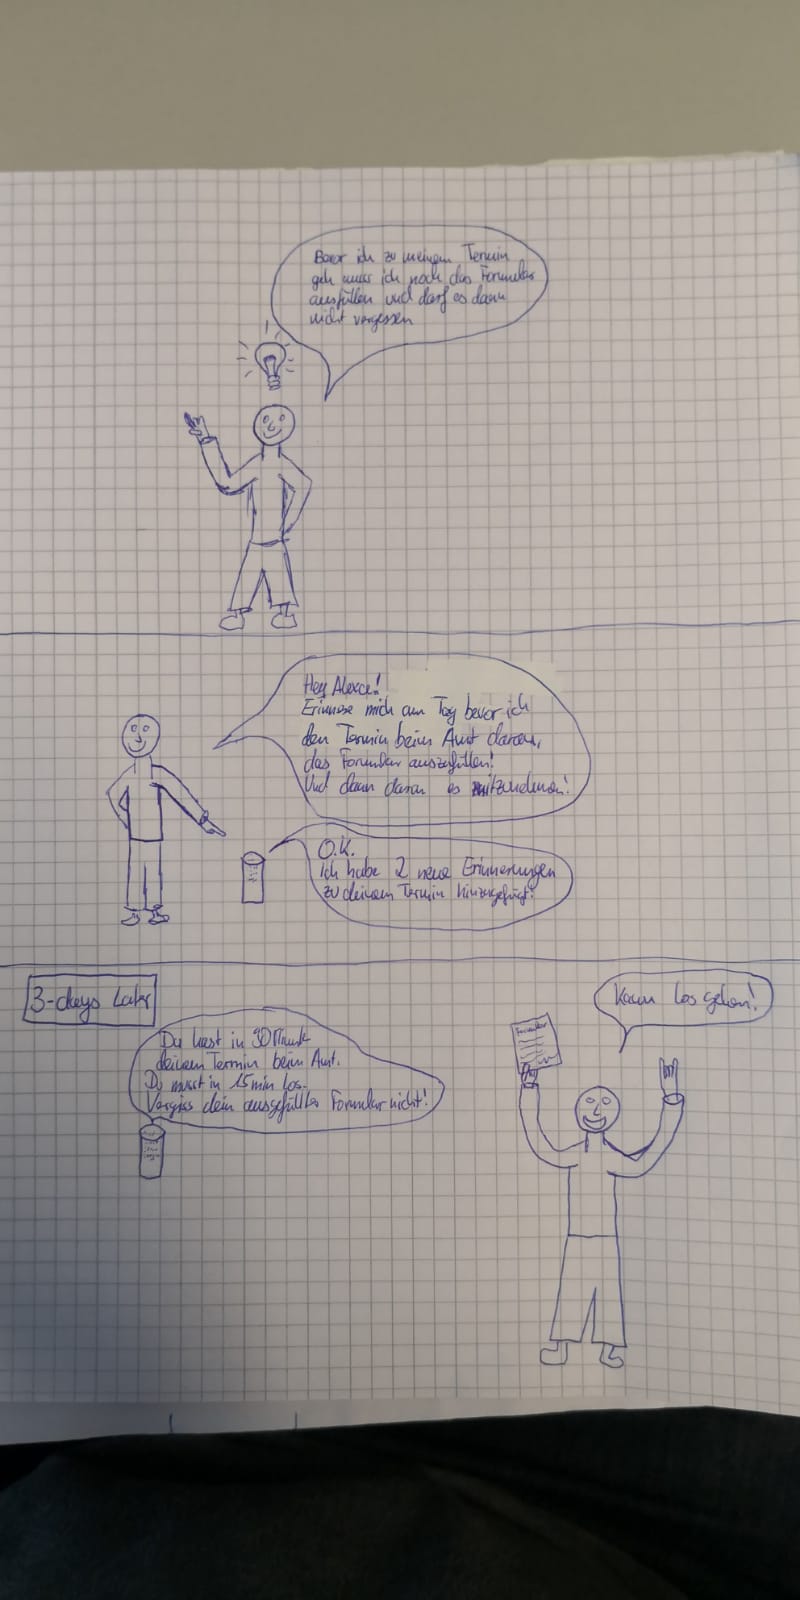 Bevor ich zu meinem Termin
geh muss ich noch das Formular
ausfüllen und darf es dann
nicht vergessen
Hey Alexa!
Erinnere mich am Tag bevor ich
den Termin beim Amt daran,
das Formular auszufüllen!
Und dann daran es mitzunehmen!
O.K.
Ich habe 2 neue Erinnerungen
zu deinem Termin hinzugefügt!
3-days Later
Du hast in
deinen Termin beim Amt.
Du musst in 15min los.
Vergiss dein ausgefülltes Formular nicht!
Kann los gehen!
Formular